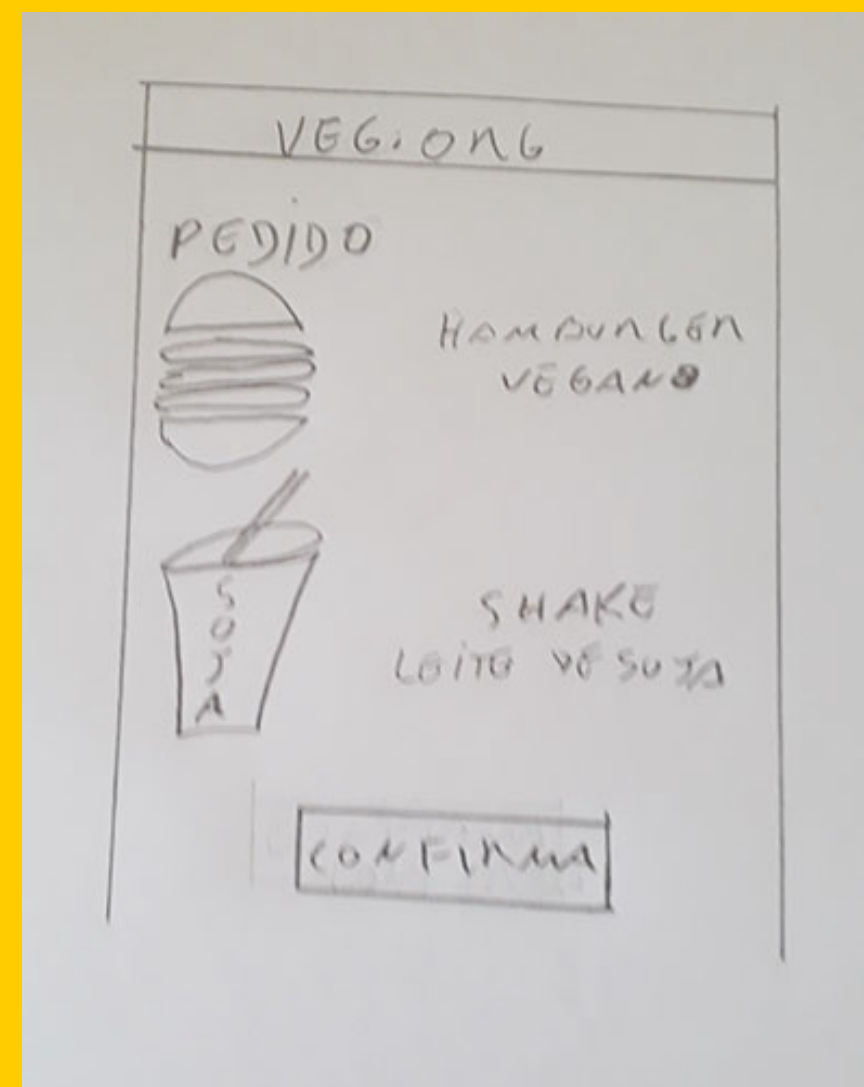 VEG.ONG
PEDIDO
HAMBURGER
VEGANO
SOJA
SHAKE
LEITE DE SOJA
CONFIRMA